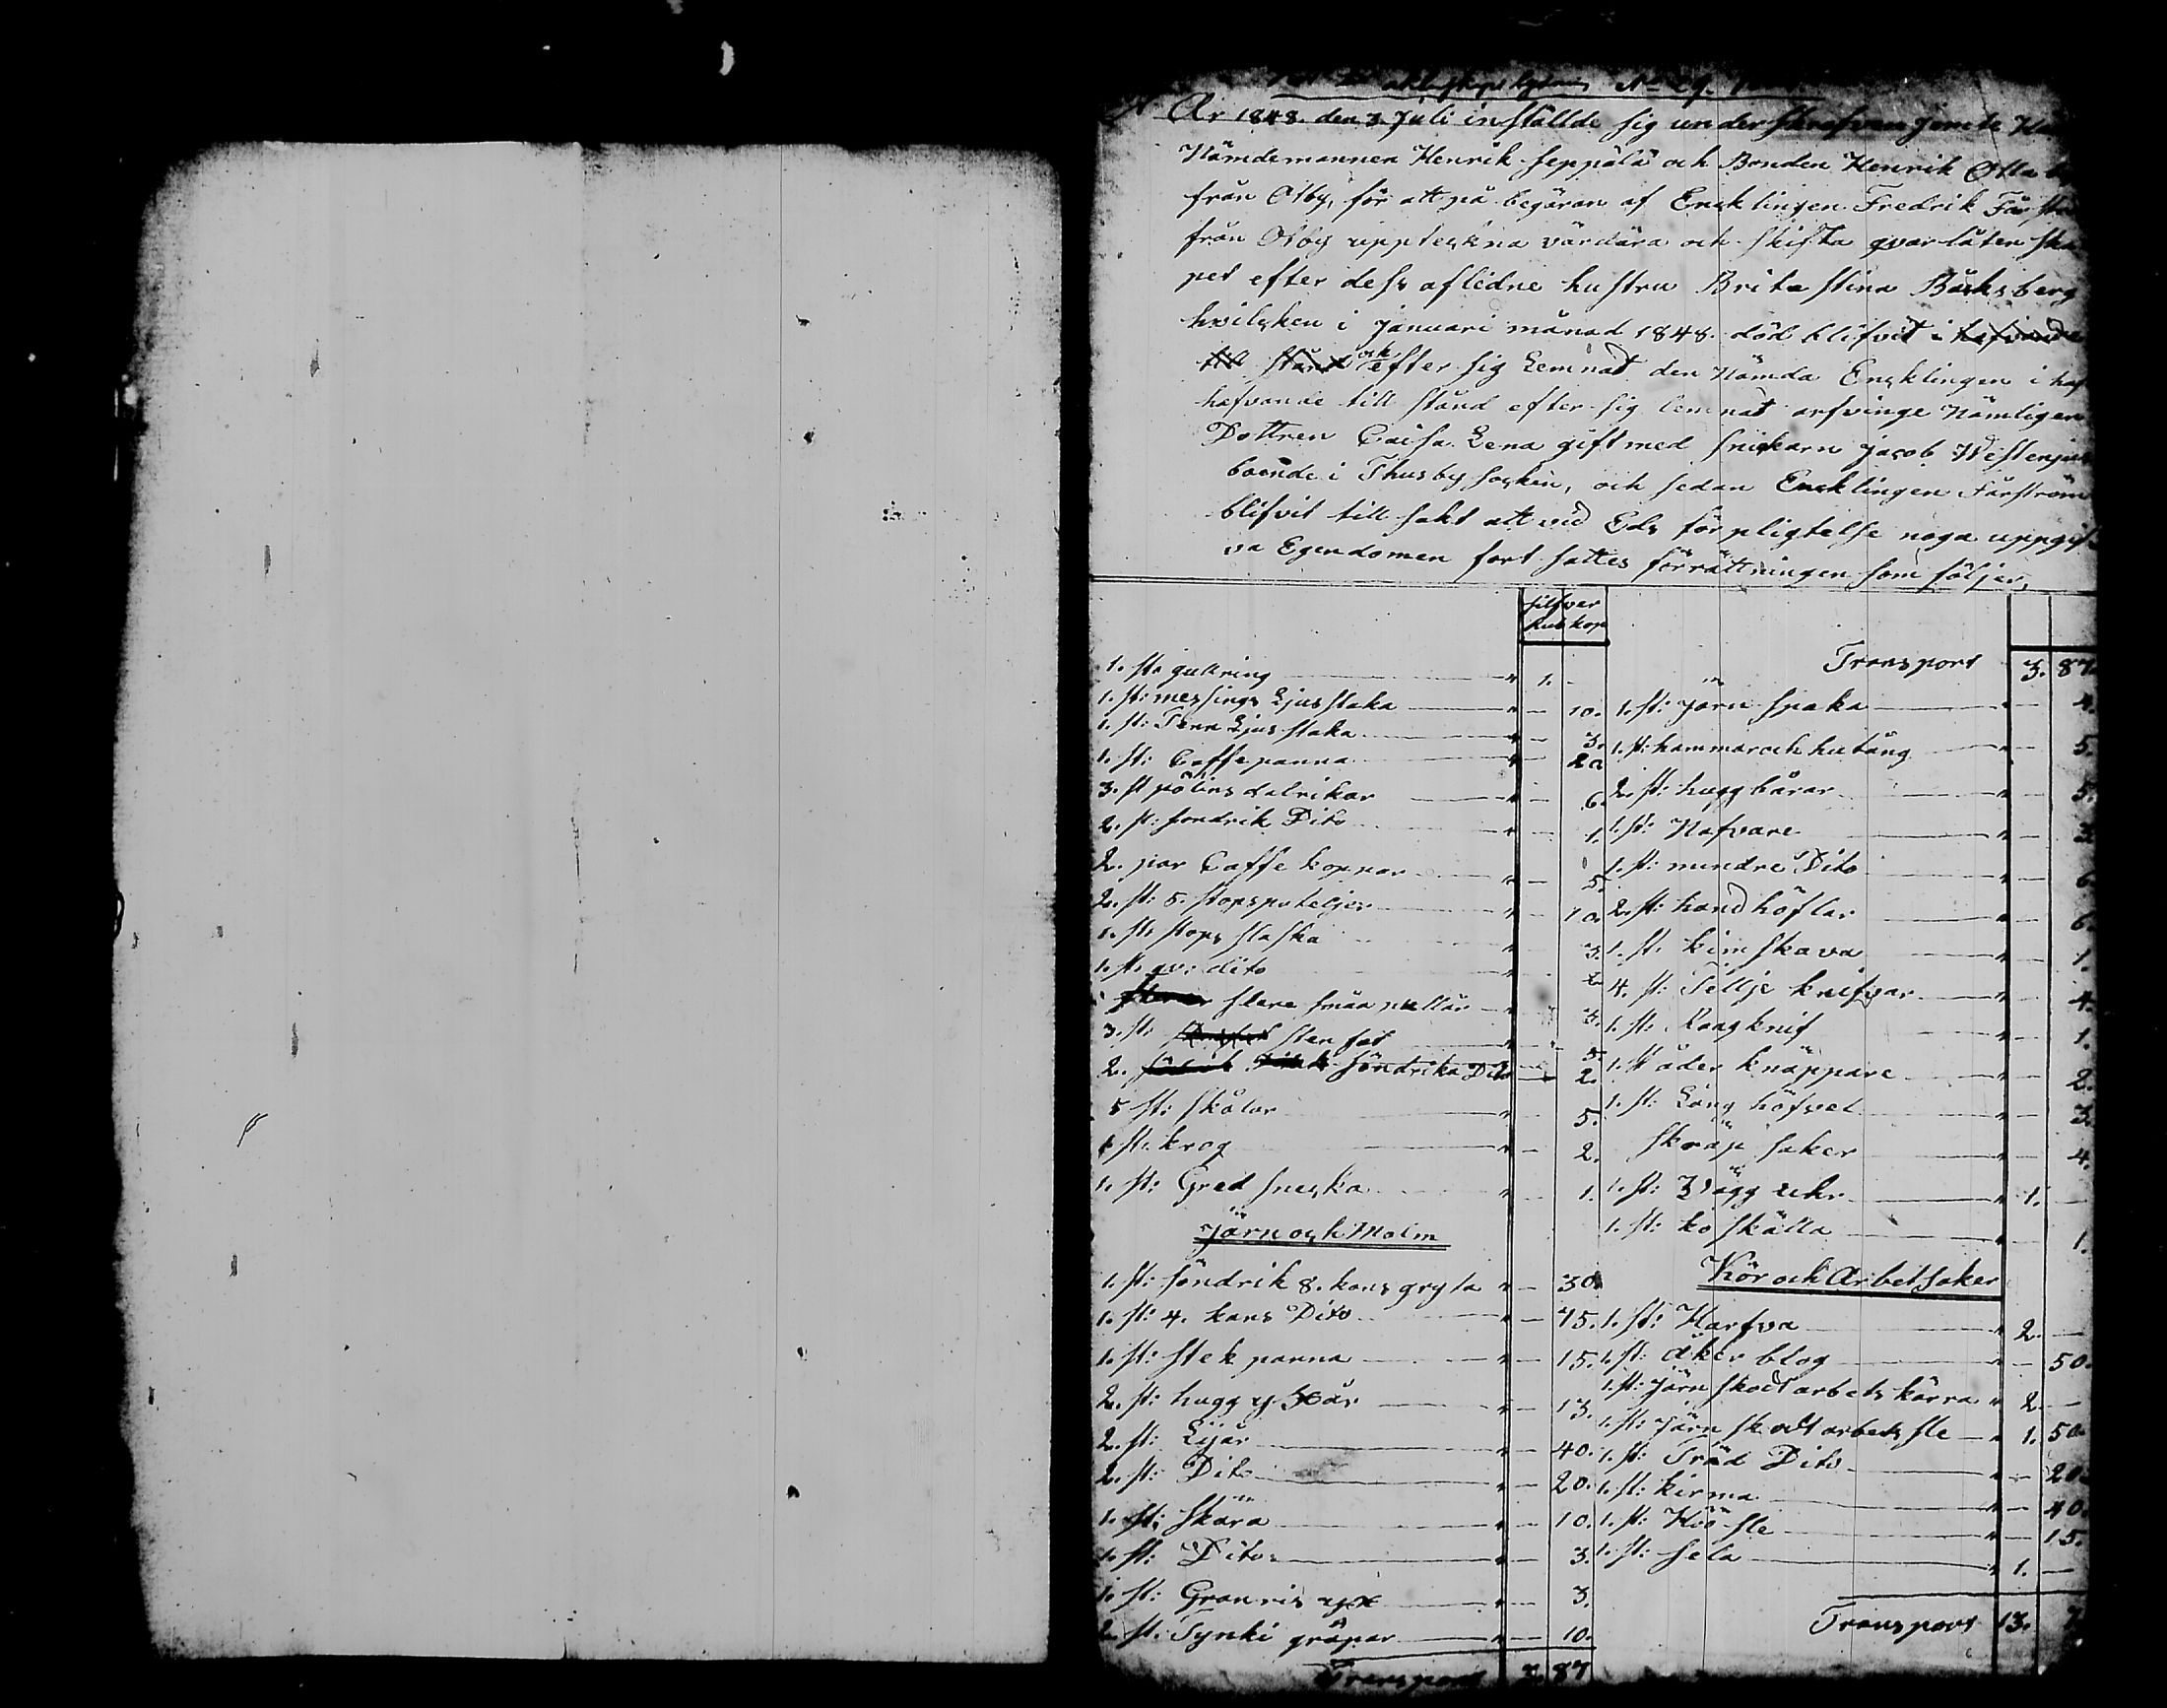 No 29.
År 1848. den 3. Juli inställde sig underskrefven jemte
Nämdemannen Henrik Seppälä och Bonden Henrik Otla
från Otby, för att på begäran af Encklingen Fredrik
från Otby uppteckna värdära och skifta qvarlåten ska
pet efter dess aflidne hustru Brita Stina Bäcksberg
hvilcken i Januari månad 1848. död blifvit i hafvande
till stånd och efter sig Lemnat den Nämda Encklingen i haf
hafvande till stånd efter sig lemnat arfvinge Nämligen
Dottren Caisa Lena gift med snickarn Jacob
boende i Thusby socken, och sedan Encklingen Färström
blifvit till sakt att vid Eds förpligtelse noga uppgif
va Egendomen fort sattes förrättningen som följer,
silfver
rub kop
1. st: gullring " 1. -
1. st: messings Ljusstaka " - 10.
1. st: Tenn Ljusstaka " - 3.
1. st: Caffepanna " - 20
3. st pålins dalrikar " - 6.
2. st: sondrik Dito " - 1.
2. par Caffe koppar " - 5.
2. st: 5. stopsputeljer " - 10.
1. st: stops flaska " 3.
1. st. qv: dito " 2
flere småa puttlar " 3.
3. st: sten fat " 5.
2. söndrika Dito " 2.
5 st: skålar " 5.
1 st: krog " - 2.
1. st: Gred snecka " - 1.
Järn och Malm
1. st: söndrik 8. kans gryta " - 30.
1. st: 4. kans Dito " - 75.
1. st: stek panna " - 15.
2. st: hugg yxår " - 13.
2. st: Lijår " - 40.
2. st: Dito " - 20.
1. st: skära " - 10.
1. st: Dito " - 3.
1. st: Granris yx " - 3.
2. st: Tynki gräpar " - 10.
Transport 3. 87
Transport 3. 87.
1. st: järn spaka " - 4.
1. st: hammar och hutång " - 5.
2. st: hugg bårar " - 5.
1. st: Nafvare " - 3
1. st: mindre Dito " - 6.
2. st: hand höflar " - 6.
1. st. kimskava " - 1.
4. st: Tellje knifvar " - 4.
1. st. Raagknif " - 1.
1. st åder knäppare " - 2.
1. st: Lång höfvel " - 3.
Skräp saker " - 4.
1. st: Vägg uhr " 1. -
1. st: ko skälla " 1.
Kör och Arbetsaker
1. st: Harfva " 2. -
1. st: åker blog " - 50.
1. st: Järn skodt arbets kärra " 2. -
1. st: Järn skodt arbets sle " 1. 50.
1. st: Träd Dito " - 20.
1. st: kirma " - 40.
1. st: Hö sle " - 15.
1. st: sela " 1. -
Transport 13. 7